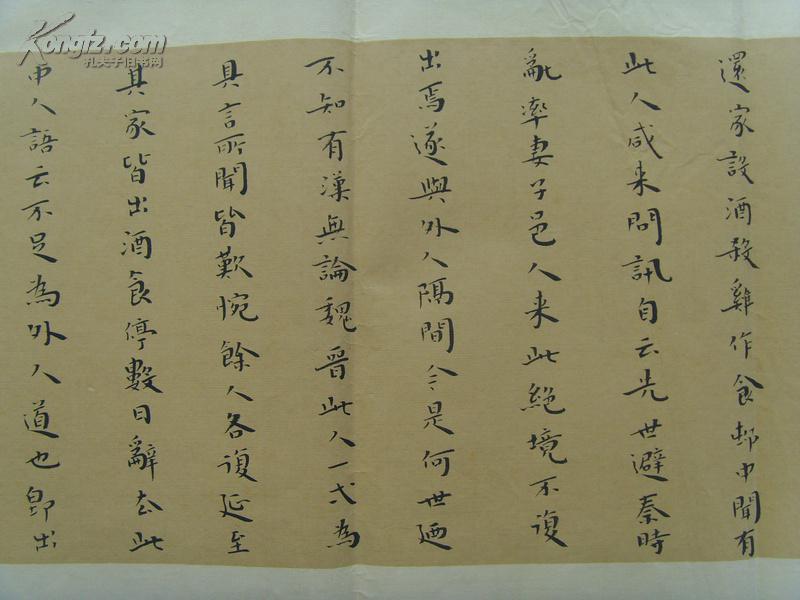 還家設酒殺雞作食邨中聞有
此人咸来問訊自云先世避秦時
亂率妻子邑人来此絕境不復
出焉遂與外人隔間今是何世廼
不知有漢無論魏晉此人一弌為
具言所聞皆歎惋餘人各復延至
其家皆出酒食停數日辭去此
中人語云不足為外人道也卽出
Kongfz.com
孔夫子旧书网